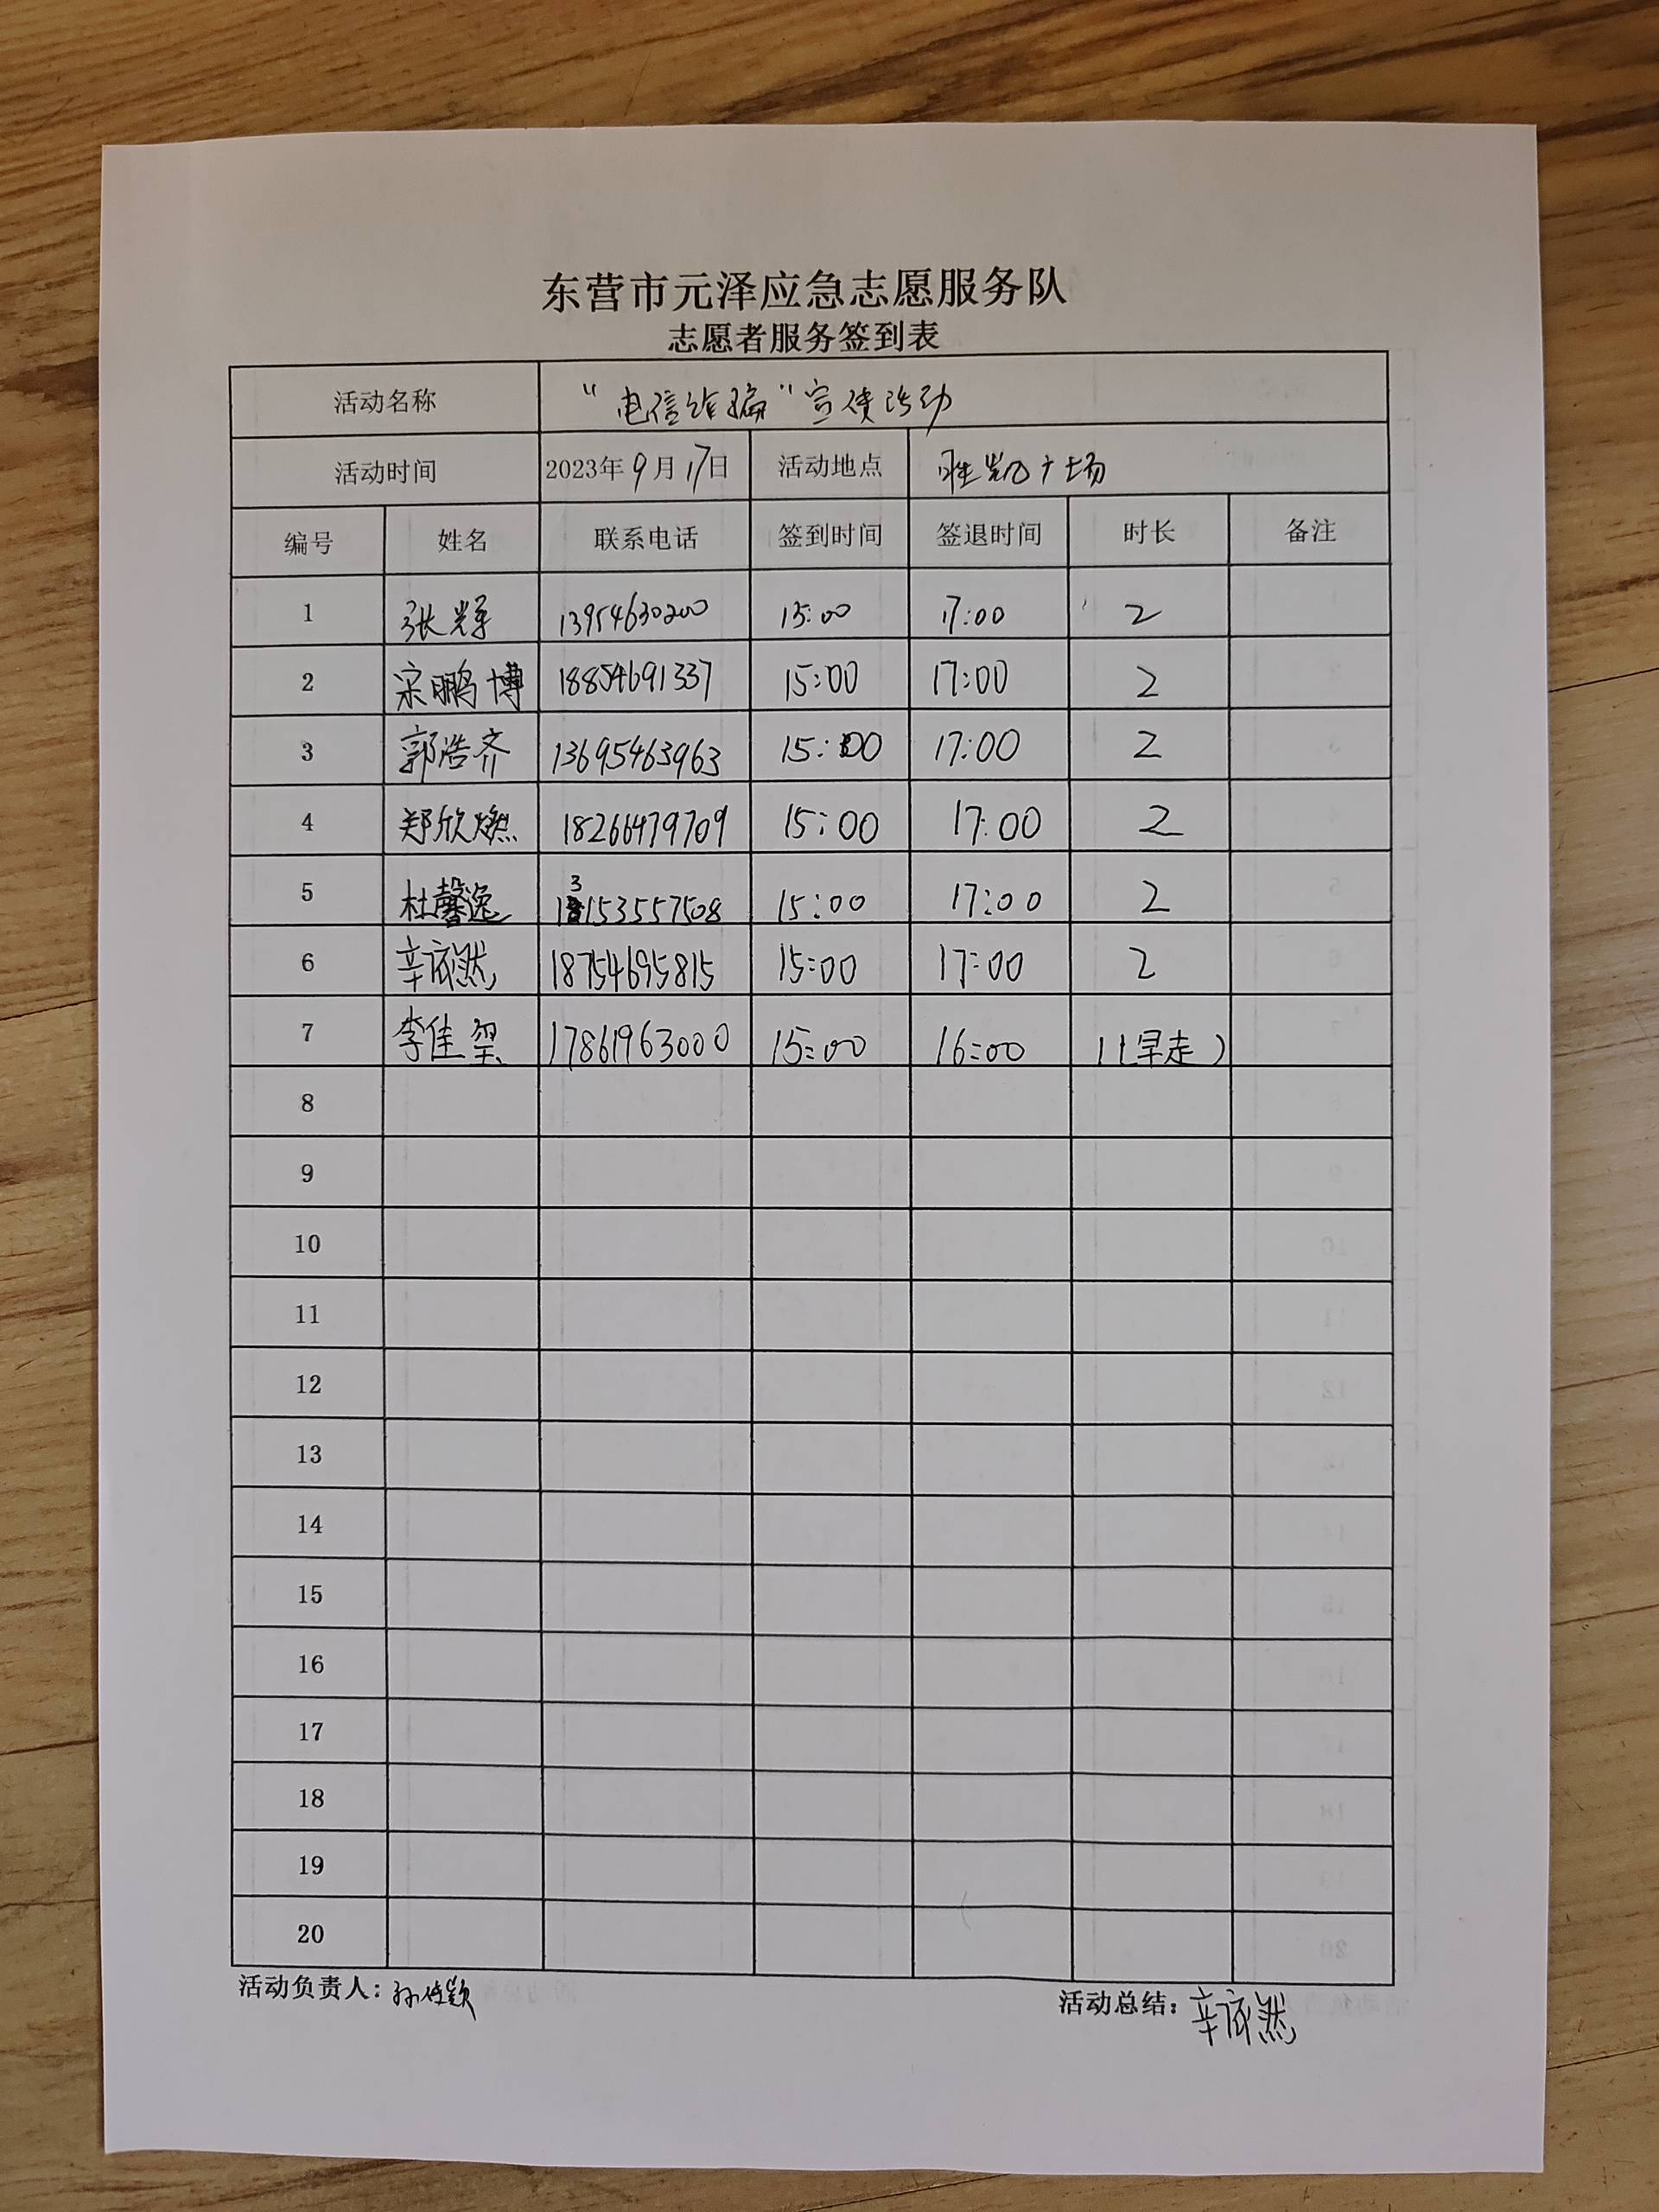 东营市元泽应急志愿服务队
志愿者服务签到表
活动名称 “电信诈骗”宣传活动
活动时间 2023年9月17日 活动地点 胜凯广场
编号 姓名 联系电话 签到时间 签退时间 时长 备注
1 张 13954630200 15:00 17:00 2
2 宋鹏博 18854691337 15:00 17:00 2
3 郭浩齐 13695463963 15:00 17:00 2
4 郑欣燃 18266479709 15:00 17:00 2
5 杜馨逸 13153557508 15:00 17:00 2
6 辛依然 18754695815 15:00 17:00 2
7 李佳玺 17861963000 15:00 16:00 1(早走)
8
9
10
11
12
13
14
15
16
17
18
19
20
活动负责人: 孙 活动总结: 辛依然